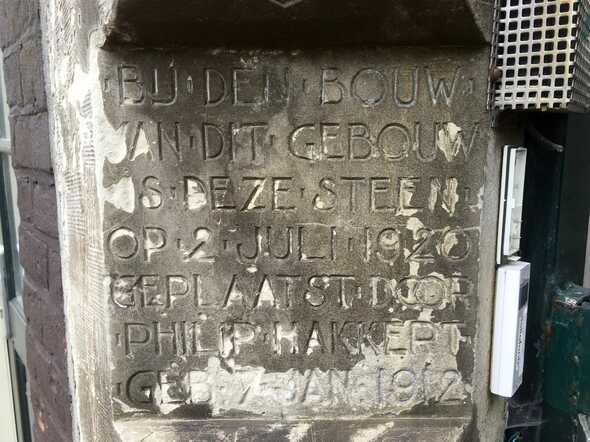 ·BIJ·DEN·BOUW·
VAN·DIT·GEBOUW
IS·DEZE·STEEN·
OP·2·JULI·1920
GEPLAATST·DOOR
·PHILIP·HAKKERT·
·GEB·7·JAN·1912·